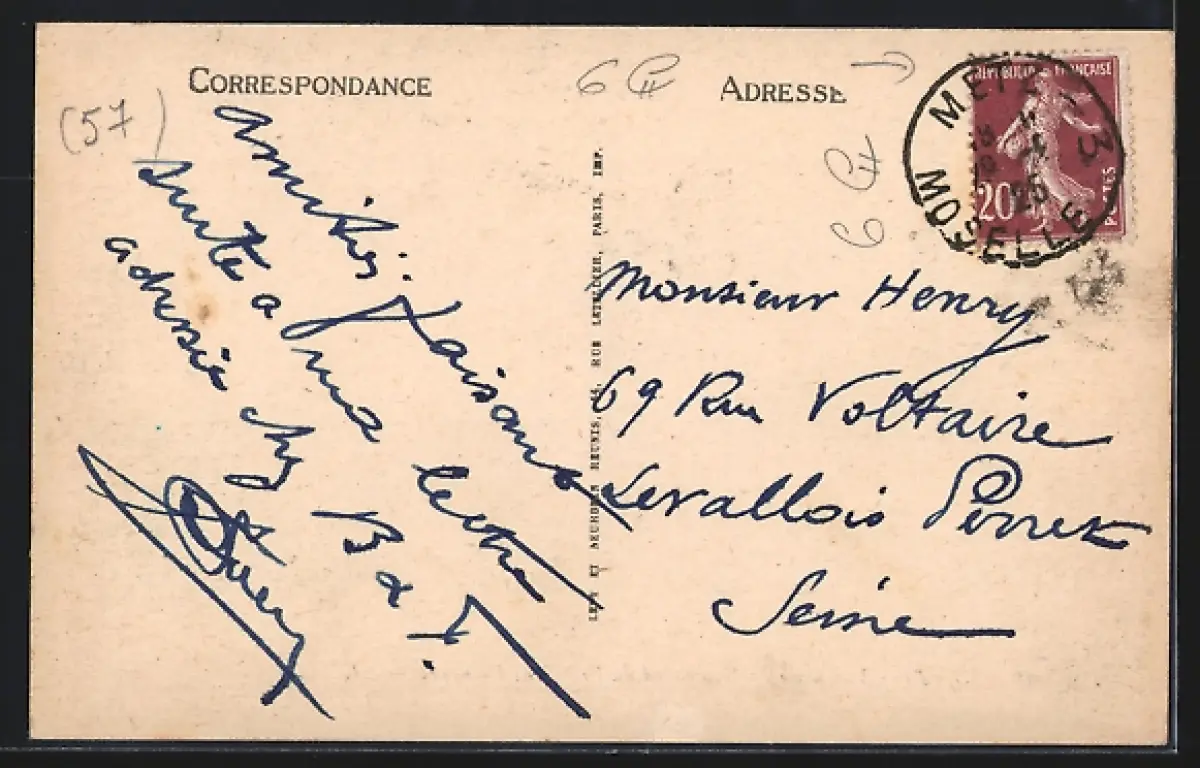 CORRESPONDANCE
(57)
Amitiés faisant
suite a ma lettre
adressée chez B & T.
6 €
ADRESSE
6 €
LEVY ET NEURDEIN REUNIS, 44, RUE LETELLIER, PARIS, IMP.
METZ - 3
MOSELLE
REPUBLIQUE FRANÇAISE
20
POSTES
Monsieur Henry
69 Rue Voltaire
Levallois Perret
Seine